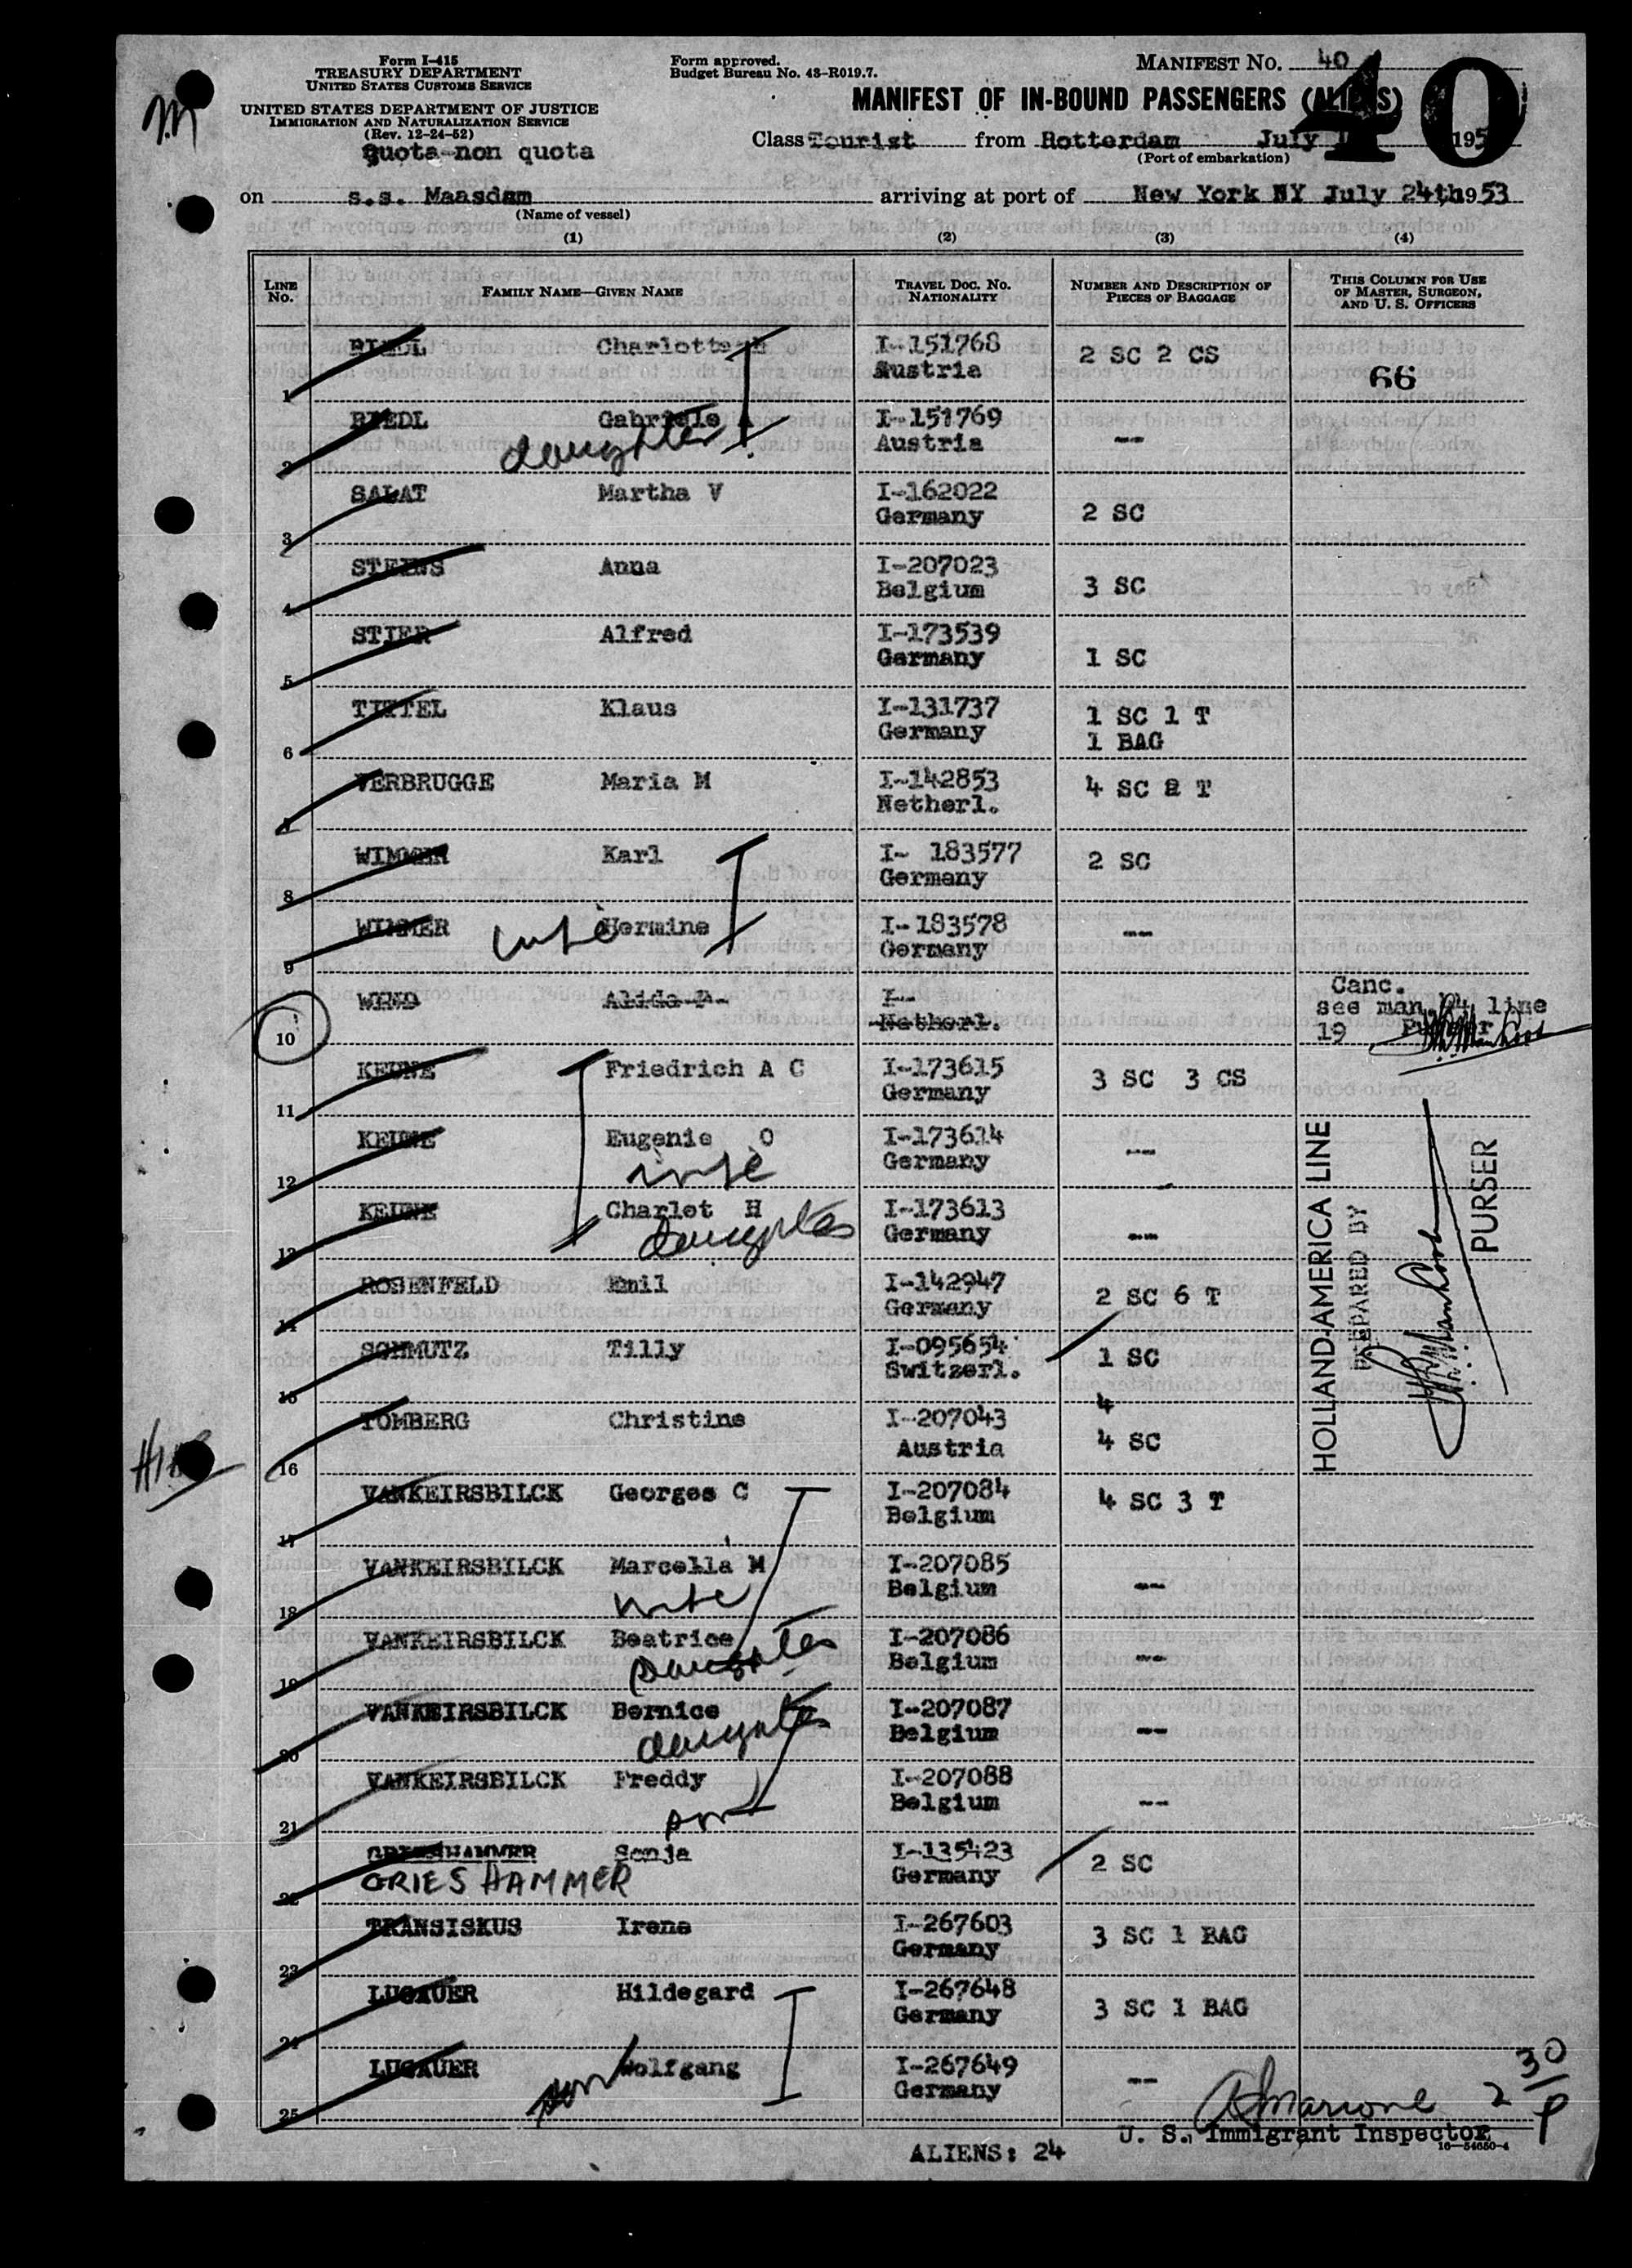 Form I-415
TREASURY DEPARTMENT
UNITED STATES CUSTOMS SERVICE
UNITED STATES DEPARTMENT OF JUSTICE
IMMIGRATION AND NATURALIZATION SERVICE
(Rev. 12-24-52)
Quota-non quota
Form approved.
Budget Bureau No. 43-R019.7.
MANIFEST NO. 40
40
MANIFEST OF IN-BOUND PASSENGERS (ALIENS)
Class Tourist from Rotterdam July 195
(Port of embarkation)
on s.s. Maasdam arriving at port of New York NY July 24th 1953
(Name of vessel)
(1) (2) (3) (4)
LINE NO. FAMILY NAME—GIVEN NAME TRAVEL DOC. NO. NATIONALITY NUMBER AND DESCRIPTION OF PIECES OF BAGGAGE THIS COLUMN FOR USE OF MASTER, SURGEON, AND U. S. OFFICERS
1 RIEDL Charlotte I-151768 2 SC 2 CS
Austria
66
2 RIEDL Gabriele A I-151769 --
daughter Austria
3 SALAT Martha V I-162022 2 SC
Germany
4 STEINS Anna I-207023 3 SC
Belgium
5 STIER Alfred I-173539 1 SC
Germany
6 TITTEL Klaus I-131737 1 SC 1 T
Germany 1 BAG
7 VERBRUGGE Maria M I-142853 4 SC 2 T
Netherl.
8 WIMMER Karl I- 183577 2 SC
Germany
9 WIMMER wife Hermine I-183578 --
Germany
10 WIND Alida P. I-
Netherl.
Canc.
see man. 94 line
19 Purser
11 KEUNE Friedrich A C I-173615 3 SC 3 CS
Germany
12 KEUNE Eugenie O I-173614 --
wife Germany
13 KEUNE Charlot H I-173613 --
daughter Germany
14 ROSENFELD Emil I-142947 2 SC 6 T
Germany
15 SCHMUTZ Tilly I-095654 1 SC
Switzerl.
16 TOMBERG Christine I-207043 4
Austria 4 SC
17 VANKEIRSBILCK Georges C I-207084 4 SC 3 T
Belgium
18 VANKEIRSBILCK Marcella M I-207085 --
wife Belgium
19 VANKEIRSBILCK Beatrice I-207086 --
Daughter Belgium
20 VANKEIRSBILCK Bernice I-207087 --
daughter Belgium
21 VANKEIRSBILCK Freddy I-207088 --
son Belgium
22 GRIESHAMMER Sonja I-135423 2 SC
GRIESHAMMER Germany
23 TRANSISKUS Irene I-267603 3 SC 1 BAG
Germany
24 LUGAUER Hildegard I-267648 3 SC 1 BAG
Germany
25 LUGAUER son Wolfgang I-267649 --
Germany
HOLLAND-AMERICA LINE
PREPARED BY
PURSER
2 30/P
U. S. Immigrant Inspector
16—54650-4
ALIENS: 24